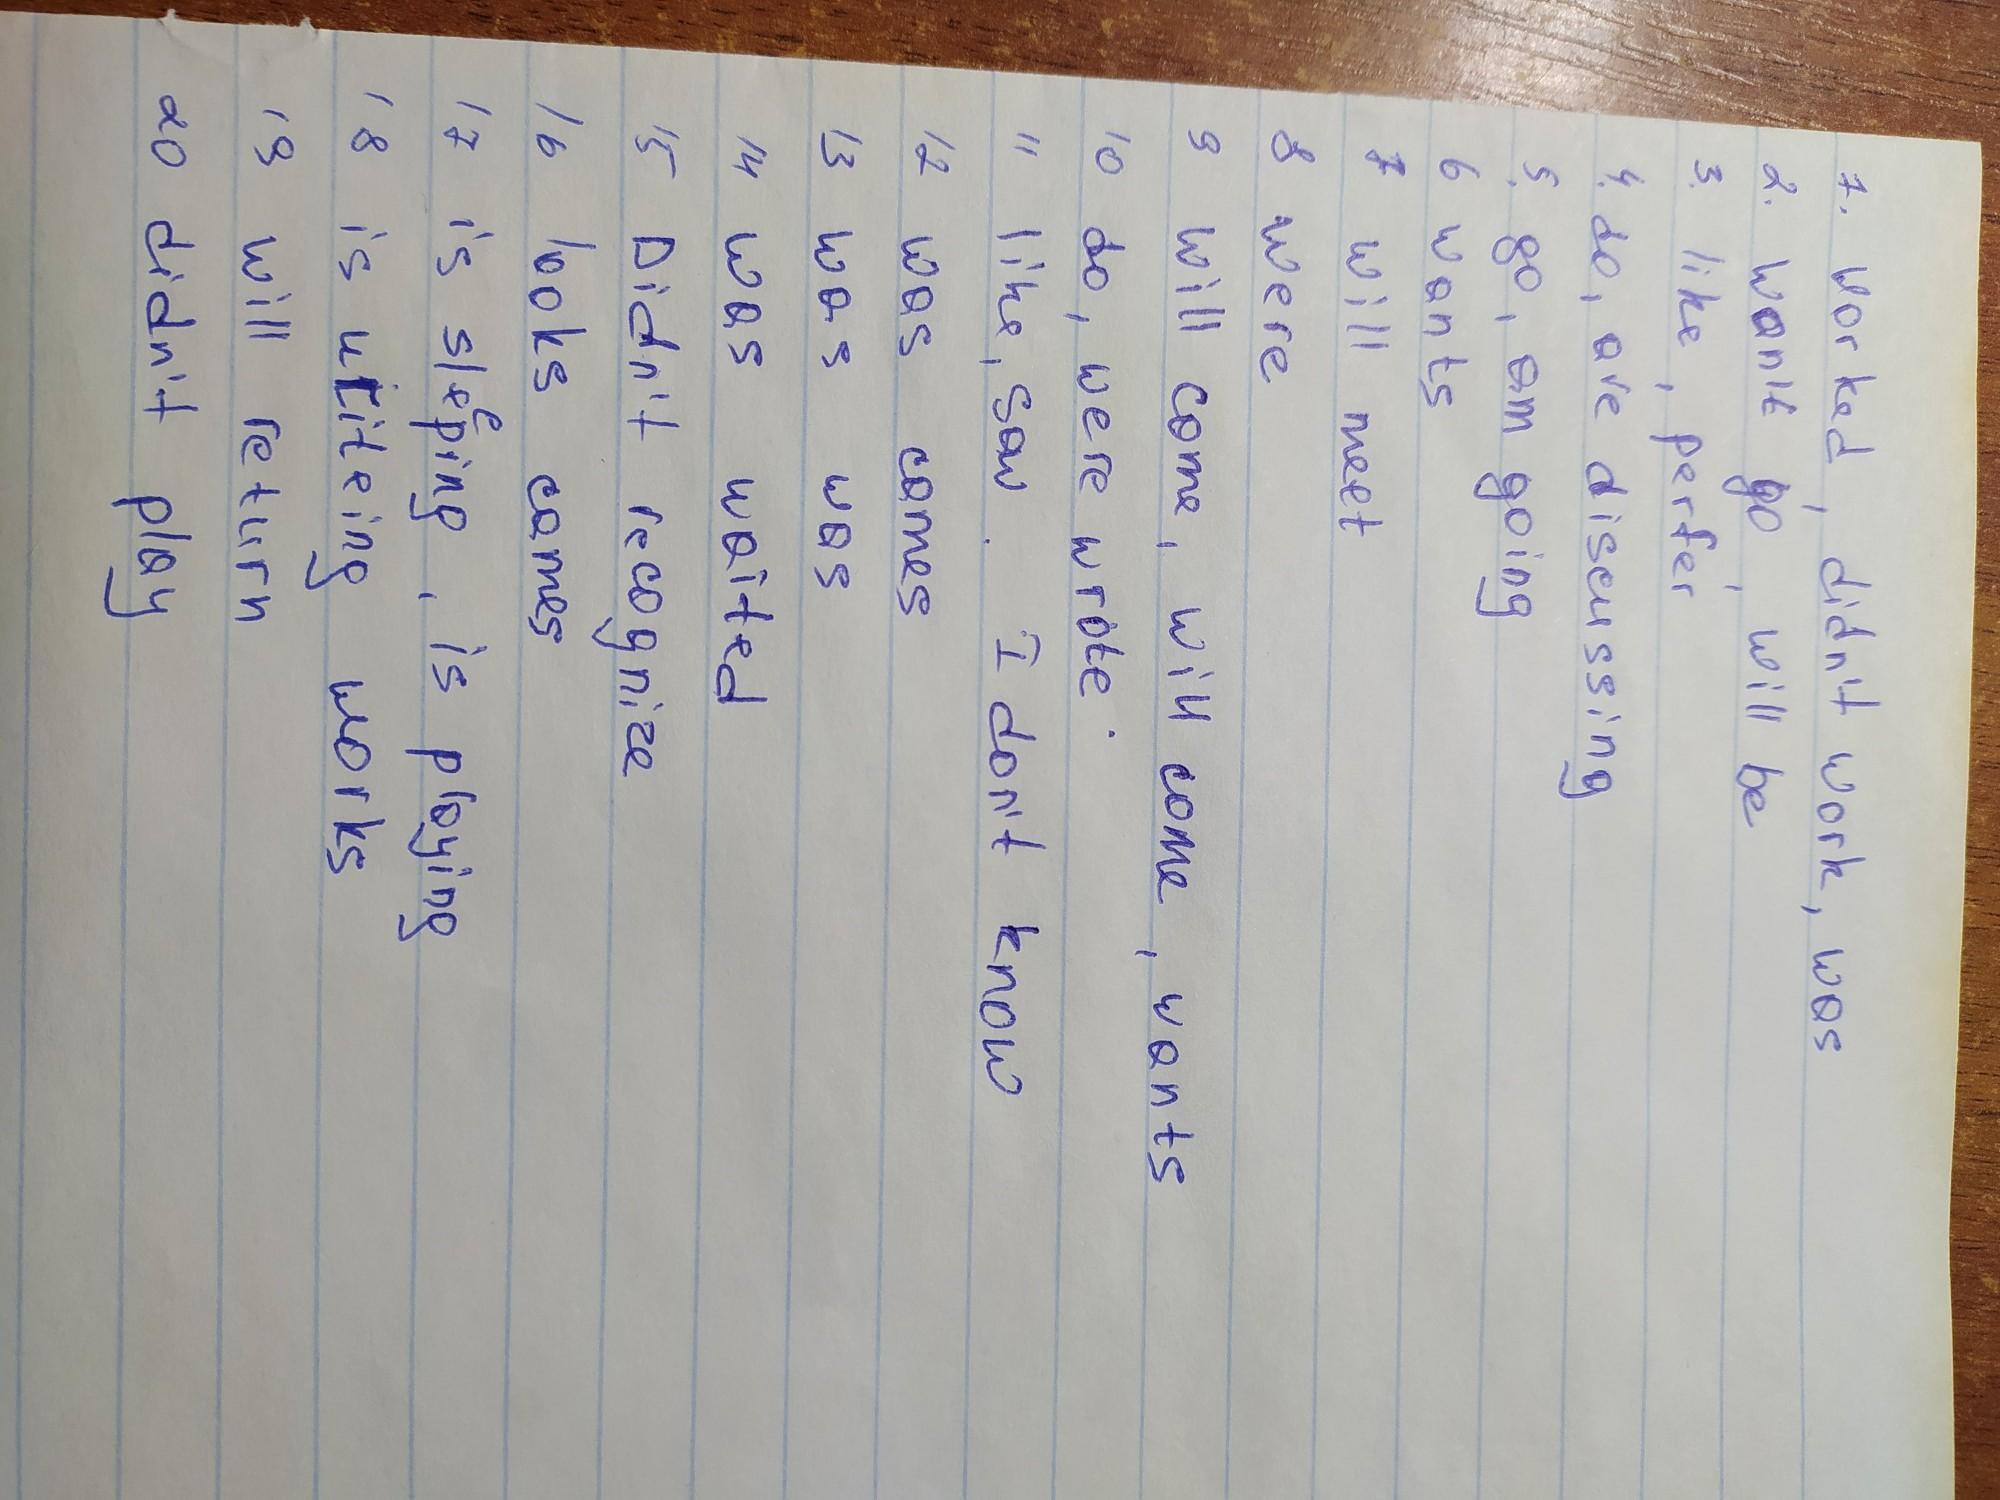 1. worked, didn't work, was
2. want go, will be
3. like, perfer
4. do, are discussing
5. go, am going
6 wants
7 will meet
8 were
9 will come, will come, wants
10 do, were wrote.
11 like, saw. I don't know
12 was comes
13 was was
14 was waited
15 Didn't recognize
16 looks comes
17 is sleeping, is playing
18 is writeing works
19 will return
20 didn't play